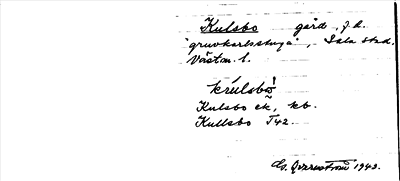 Kulsbo gård, f.d.
"gruvkarlsstuga", Sala stad.
Västm. l.
krúlsbò
Kulsbo ek, kb.
Kullsbo T42.
1943.